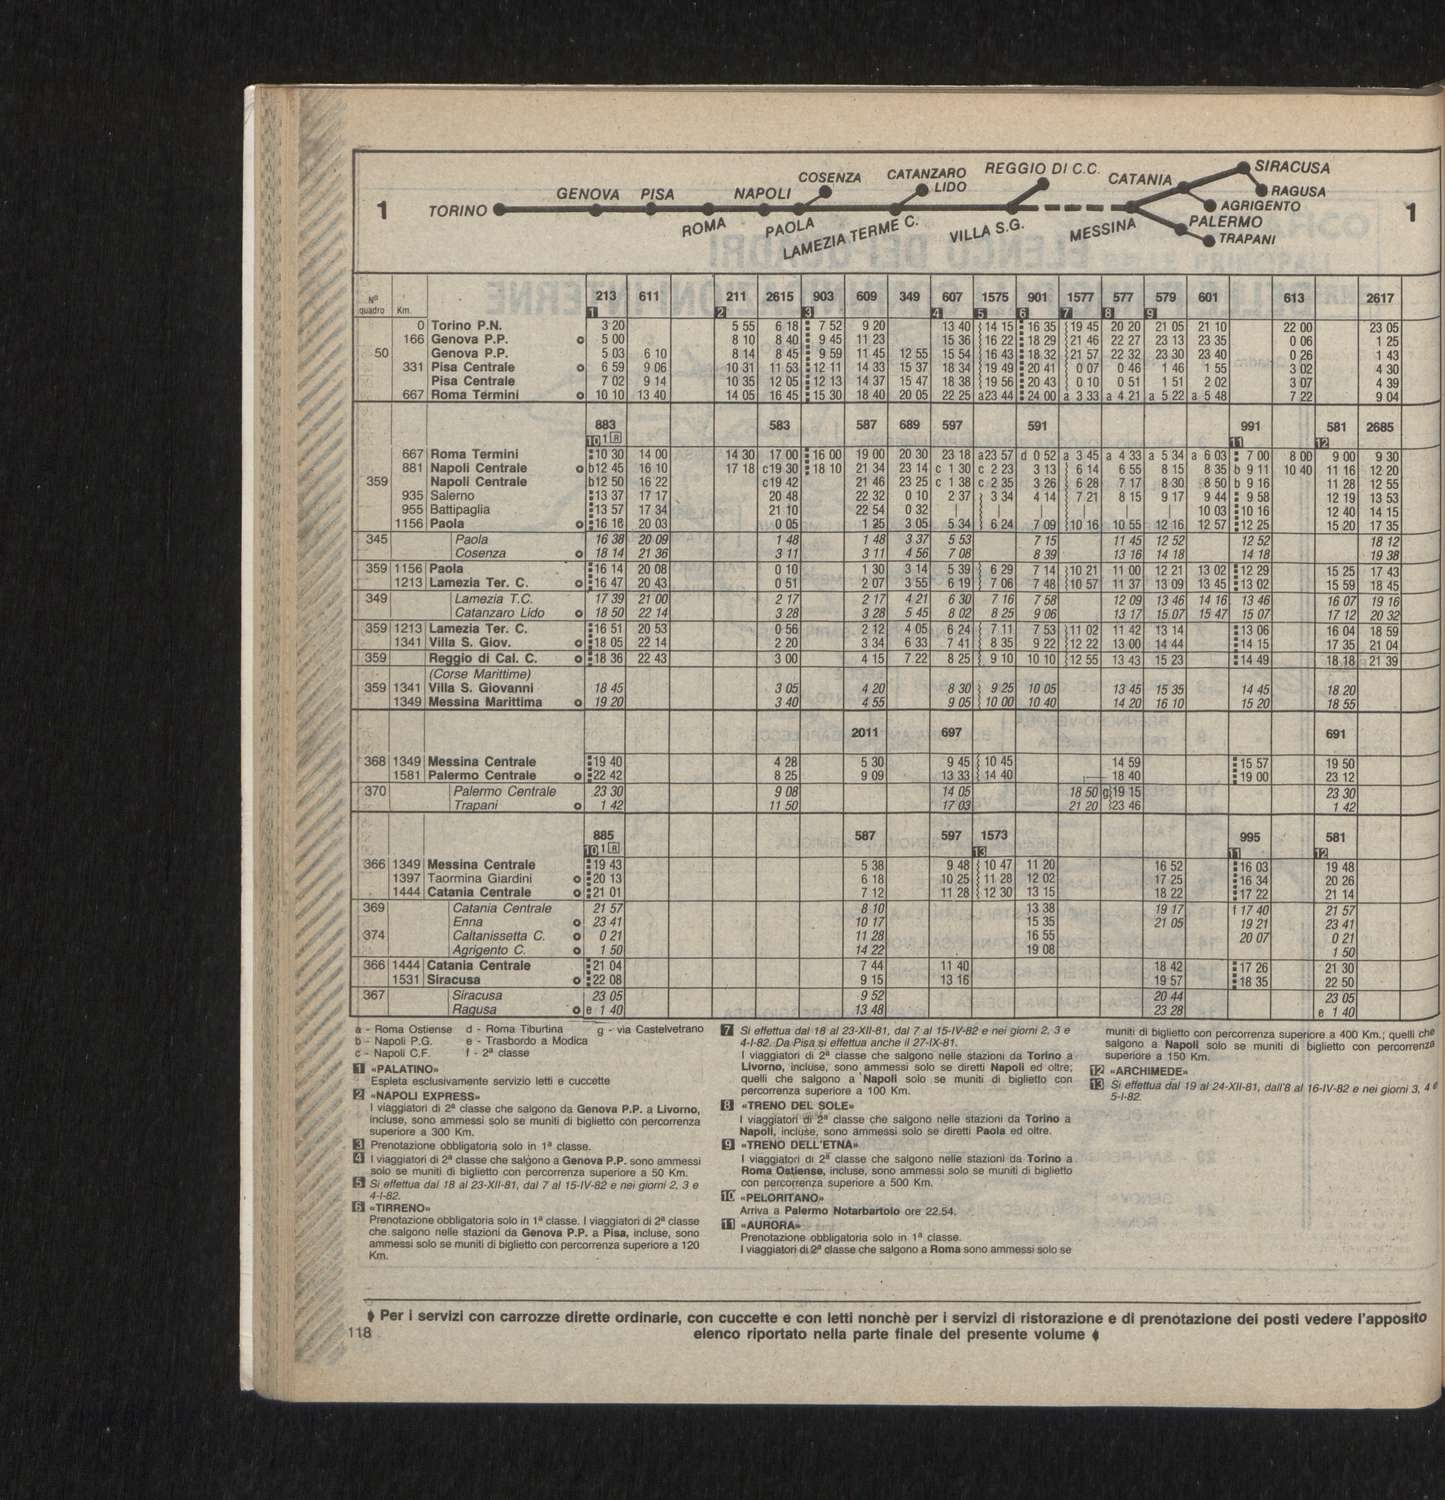 1
TORINO GENOVA PISA ROMA NAPOLI PAOLA COSENZA LAMEZIA TERME C. CATANZARO LIDO VILLA S.G. REGGIO DI C.C. MESSINA CATANIA SIRACUSA RAGUSA AGRIGENTO PALERMO TRAPANI
1
Nº quadro Km. 213 611 211 2615 903 609 349 607 1575 901 1577 577 579 601 613 2617
1 2 3 4 5 6 7 8 9
0 Torino P.N. 3 20 5 55 6 18 7 52 9 20 13 40 14 15 16 35 19 45 20 20 21 05 21 10 22 00 23 05
166 Genova P.P. 5 00 8 10 8 40 9 45 11 23 15 36 16 22 18 29 21 46 22 27 23 13 23 35 0 06 1 25
50 Genova P.P. 5 03 6 10 8 14 8 45 9 59 11 45 12 55 15 54 16 43 18 32 21 57 22 32 23 30 23 40 0 26 1 43
331 Pisa Centrale 6 59 9 06 10 31 11 53 12 11 14 33 15 37 18 34 19 49 20 41 0 07 0 46 1 46 1 55 3 02 4 30
Pisa Centrale 7 02 9 14 10 35 12 05 12 13 14 37 15 47 18 38 19 56 20 43 0 10 0 51 1 51 2 02 3 07 4 39
667 Roma Termini 10 10 13 40 14 05 16 45 15 30 18 40 20 05 22 25 a23 44 24 00 a 3 33 a 4 21 a 5 22 a 5 48 7 22 9 04
883 583 587 689 597 591 991 581 2685
10 1 R 11 12
667 Roma Termini 10 30 14 00 14 30 17 00 16 00 19 00 20 30 23 18 a23 57 d 0 52 a 3 45 a 4 33 a 5 34 a 6 03 7 00 8 00 9 00 9 30
881 Napoli Centrale b12 45 16 10 17 18 c19 30 18 10 21 34 23 14 c 1 30 c 2 23 3 13 6 14 6 55 8 15 8 35 b 9 11 10 40 11 16 12 20
359 Napoli Centrale b12 50 16 22 c19 42 21 46 23 25 c 1 38 c 2 35 3 26 6 28 7 17 8 30 8 50 b 9 16 11 28 12 55
935 Salerno 13 37 17 17 20 48 22 32 0 10 2 37 3 34 4 14 7 21 8 15 9 17 9 44 9 58 12 19 13 53
955 Battipaglia 13 57 17 34 21 10 22 54 0 32 | | | | | | 10 03 10 16 12 40 14 15
1156 Paola 16 16 20 03 0 05 1 25 3 05 5 34 6 24 7 09 10 16 10 55 12 16 12 57 12 25 15 20 17 35
345 Paola 16 38 20 09 1 48 1 48 3 37 5 53 7 15 11 45 12 52 12 52 18 12
Cosenza 18 14 21 36 3 11 3 11 4 56 7 08 8 39 13 16 14 18 14 18 19 38
359 1156 Paola 16 14 20 08 0 10 1 30 3 14 5 39 6 29 7 14 10 21 11 00 12 21 13 02 12 29 15 25 17 43
1213 Lamezia Ter. C. 16 47 20 43 0 51 2 07 3 55 6 19 7 06 7 48 10 57 11 37 13 09 13 45 13 02 15 59 18 45
349 Lamezia T.C. 17 39 21 00 2 17 2 17 4 21 6 30 7 16 7 58 12 09 13 46 14 16 13 46 16 07 19 16
Catanzaro Lido 18 50 22 14 3 28 3 28 5 45 8 02 8 25 9 06 13 17 15 07 15 47 15 07 17 12 20 32
359 1213 Lamezia Ter. C. 16 51 20 53 0 56 2 12 4 05 6 24 7 11 7 53 11 02 11 42 13 14 13 06 16 04 18 59
1341 Villa S. Giov. 18 05 22 14 2 20 3 34 6 33 7 41 8 35 9 22 12 22 13 00 14 44 14 15 17 35 21 04
359 Reggio di Cal. C. 18 36 22 43 3 00 4 15 7 22 8 25 9 10 10 10 12 55 13 43 15 23 14 49 18 18 21 39
(Corse Marittime)
359 1341 Villa S. Giovanni 18 45 3 05 4 20 8 30 9 25 10 05 13 45 15 35 14 45 18 20
1349 Messina Marittima 19 20 3 40 4 55 9 05 10 00 10 40 14 20 16 10 15 20 18 55
2011 697 691
368 1349 Messina Centrale 19 40 4 28 5 30 9 45 10 45 14 59 15 57 19 50
1581 Palermo Centrale 22 42 8 25 9 09 13 33 14 40 18 40 19 00 23 12
370 Palermo Centrale 23 30 9 08 14 05 18 50 g19 15 23 30
Trapani 1 42 11 50 17 03 21 20 23 46 1 42
885 587 597 1573 995 581
10 1 R 13 11 12
366 1349 Messina Centrale 19 43 5 38 9 48 10 47 11 20 16 52 16 03 19 48
1397 Taormina Giardini 20 13 6 18 10 25 11 28 12 02 17 25 16 34 20 26
1444 Catania Centrale 21 01 7 12 11 28 12 30 13 15 18 22 17 22 21 14
369 Catania Centrale 21 57 8 10 13 38 19 17 f 17 40 21 57
Enna 23 41 10 17 15 35 21 05 19 21 23 41
374 Caltanissetta C. 0 21 11 28 16 55 20 07 0 21
Agrigento C. 1 50 14 22 19 08 1 50
366 1444 Catania Centrale 21 04 7 44 11 40 18 42 17 26 21 30
1531 Siracusa 22 08 9 15 13 16 19 57 18 35 22 50
367 Siracusa 23 05 9 52 20 44 23 05
Ragusa e 1 40 13 48 23 28 e 1 40
a - Roma Ostiense d - Roma Tiburtina g - via Castelvetrano
b - Napoli P.G. e - Trasbordo a Modica
c - Napoli C.F. f - 2ª classe
1 «PALATINO»
Espleta esclusivamente servizio letti e cuccette
2 «NAPOLI EXPRESS»
I viaggiatori di 2ª classe che salgono da Genova P.P. a Livorno,
incluse, sono ammessi solo se muniti di biglietto con percorrenza
superiore a 300 Km.
3 Prenotazione obbligatoria solo in 1ª classe.
4 I viaggiatori di 2ª classe che salgono a Genova P.P. sono ammessi
solo se muniti di biglietto con percorrenza superiore a 50 Km.
5 Si effettua dal 18 al 23-XII-81, dal 7 al 15-IV-82 e nei giorni 2, 3 e
4-I-82.
6 «TIRRENO»
Prenotazione obbligatoria solo in 1ª classe. I viaggiatori di 2ª classe
che salgono nelle stazioni da Genova P.P. a Pisa, incluse, sono
ammessi solo se muniti di biglietto con percorrenza superiore a 120
Km.
7 Si effettua dal 18 al 23-XII-81, dal 7 al 15-IV-82 e nei giorni 2, 3 e
4-I-82. Da Pisa si effettua anche il 27-IX-81.
I viaggiatori di 2ª classe che salgono nelle stazioni da Torino a
Livorno, incluse, sono ammessi solo se diretti Napoli ed oltre;
quelli che salgono a Napoli solo se muniti di biglietto con
percorrenza superiore a 100 Km.
8 «TRENO DEL SOLE»
I viaggiatori di 2ª classe che salgono nelle stazioni da Torino a
Napoli, incluse, sono ammessi solo se diretti Paola ed oltre.
9 «TRENO DELL'ETNA»
I viaggiatori di 2ª classe che salgono nelle stazioni da Torino a
Roma Ostiense, incluse, sono ammessi solo se muniti di biglietto
con percorrenza superiore a 500 Km.
10 «PELORITANO»
Arriva a Palermo Notarbartolo ore 22.54.
11 «AURORA»
Prenotazione obbligatoria solo in 1ª classe.
I viaggiatori di 2ª classe che salgono a Roma sono ammessi solo se
muniti di biglietto con percorrenza superiore a 400 Km.; quelli che
salgono a Napoli solo se muniti di biglietto con percorrenza
superiore a 150 Km.
12 «ARCHIMEDE»
13 Si effettua dal 19 al 24-XII-81, dall'8 al 16-IV-82 e nei giorni 3, 4 e
5-I-82.
Per i servizi con carrozze dirette ordinarie, con cuccette e con letti nonchè per i servizi di ristorazione e di prenotazione dei posti vedere l'apposito
elenco riportato nella parte finale del presente volume
118